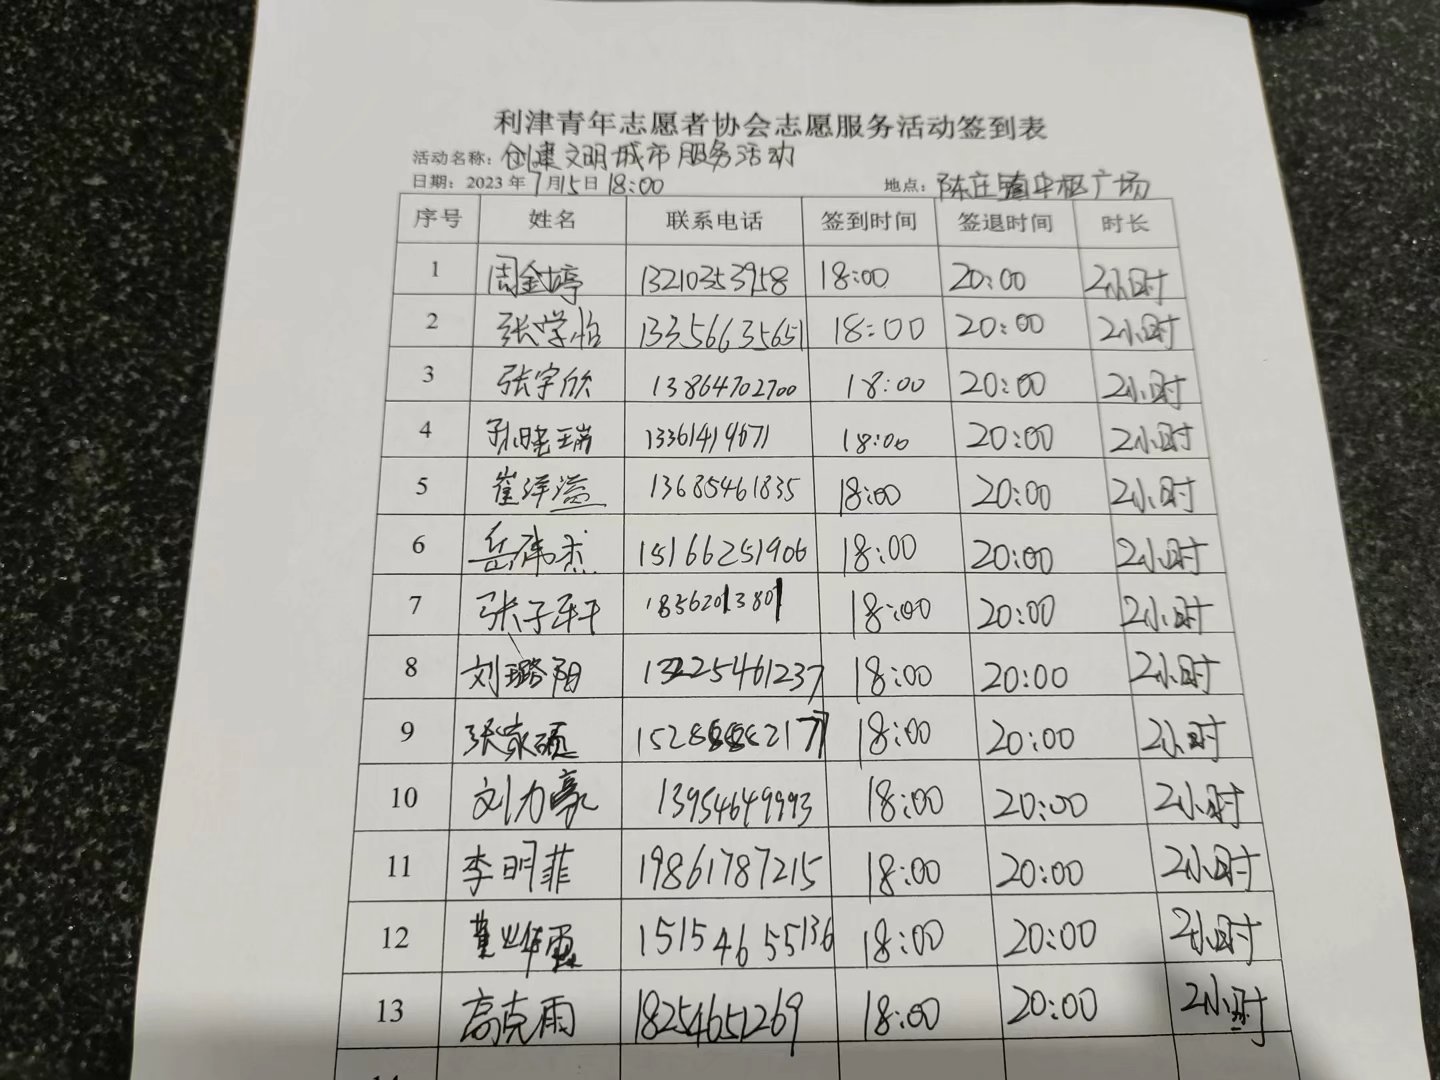 利津青年志愿者协会志愿服务活动签到表
活动名称：创建文明城市服务活动
日期：2023年7月15日 18:00 地点：陈庄镇中枢广场
序号 姓名 联系电话 签到时间 签退时间 时长
1 周金婷 13210353958 18:00 20:00 2小时
2 张学怡 13356635651 18:00 20:00 2小时
3 张宇欣 13864702700 18:00 20:00 2小时
4 孙晓瑞 13361419671 18:00 20:00 2小时
5 崔洋溢 13685461835 18:00 20:00 2小时
6 岳伟杰 15166251906 18:00 20:00 2小时
7 张子轩 18562013801 18:00 20:00 2小时
8 刘璐阳 13225461237 18:00 20:00 2小时
9 张家硕 18:00 20:00 2小时
10 刘力豪 13954649993 18:00 20:00 2小时
11 李明菲 19861787215 18:00 20:00 2小时
12 15154655136 18:00 20:00 2小时
13 高克雨 18254651269 18:00 20:00 2小时